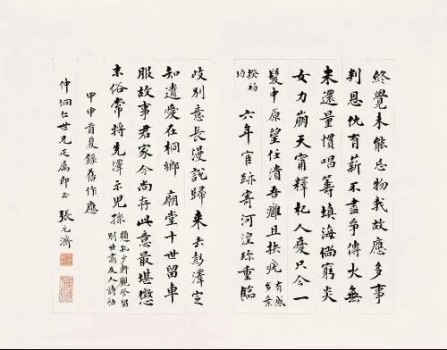 終覺未能忘物我故應多事
判恩仇育薪不盡爭傳火無
未還量慣唱籌填海倘窮炎
女力崩天甯釋杞人憂只今一
髮中原望任潰吾離且扶疣
六年官跡寄河湟珍重臨
歧別意長漫說歸來去彭澤定
知遺愛在桐鄉 廟堂十世留車
服故事君家今尚存此意最堪懲
末俗常將先澤示兒孫 題孔少軒觀察留
別甘肅友人詩
甲申首夏錄舊作應
仲仁世兄屬即正 張元濟